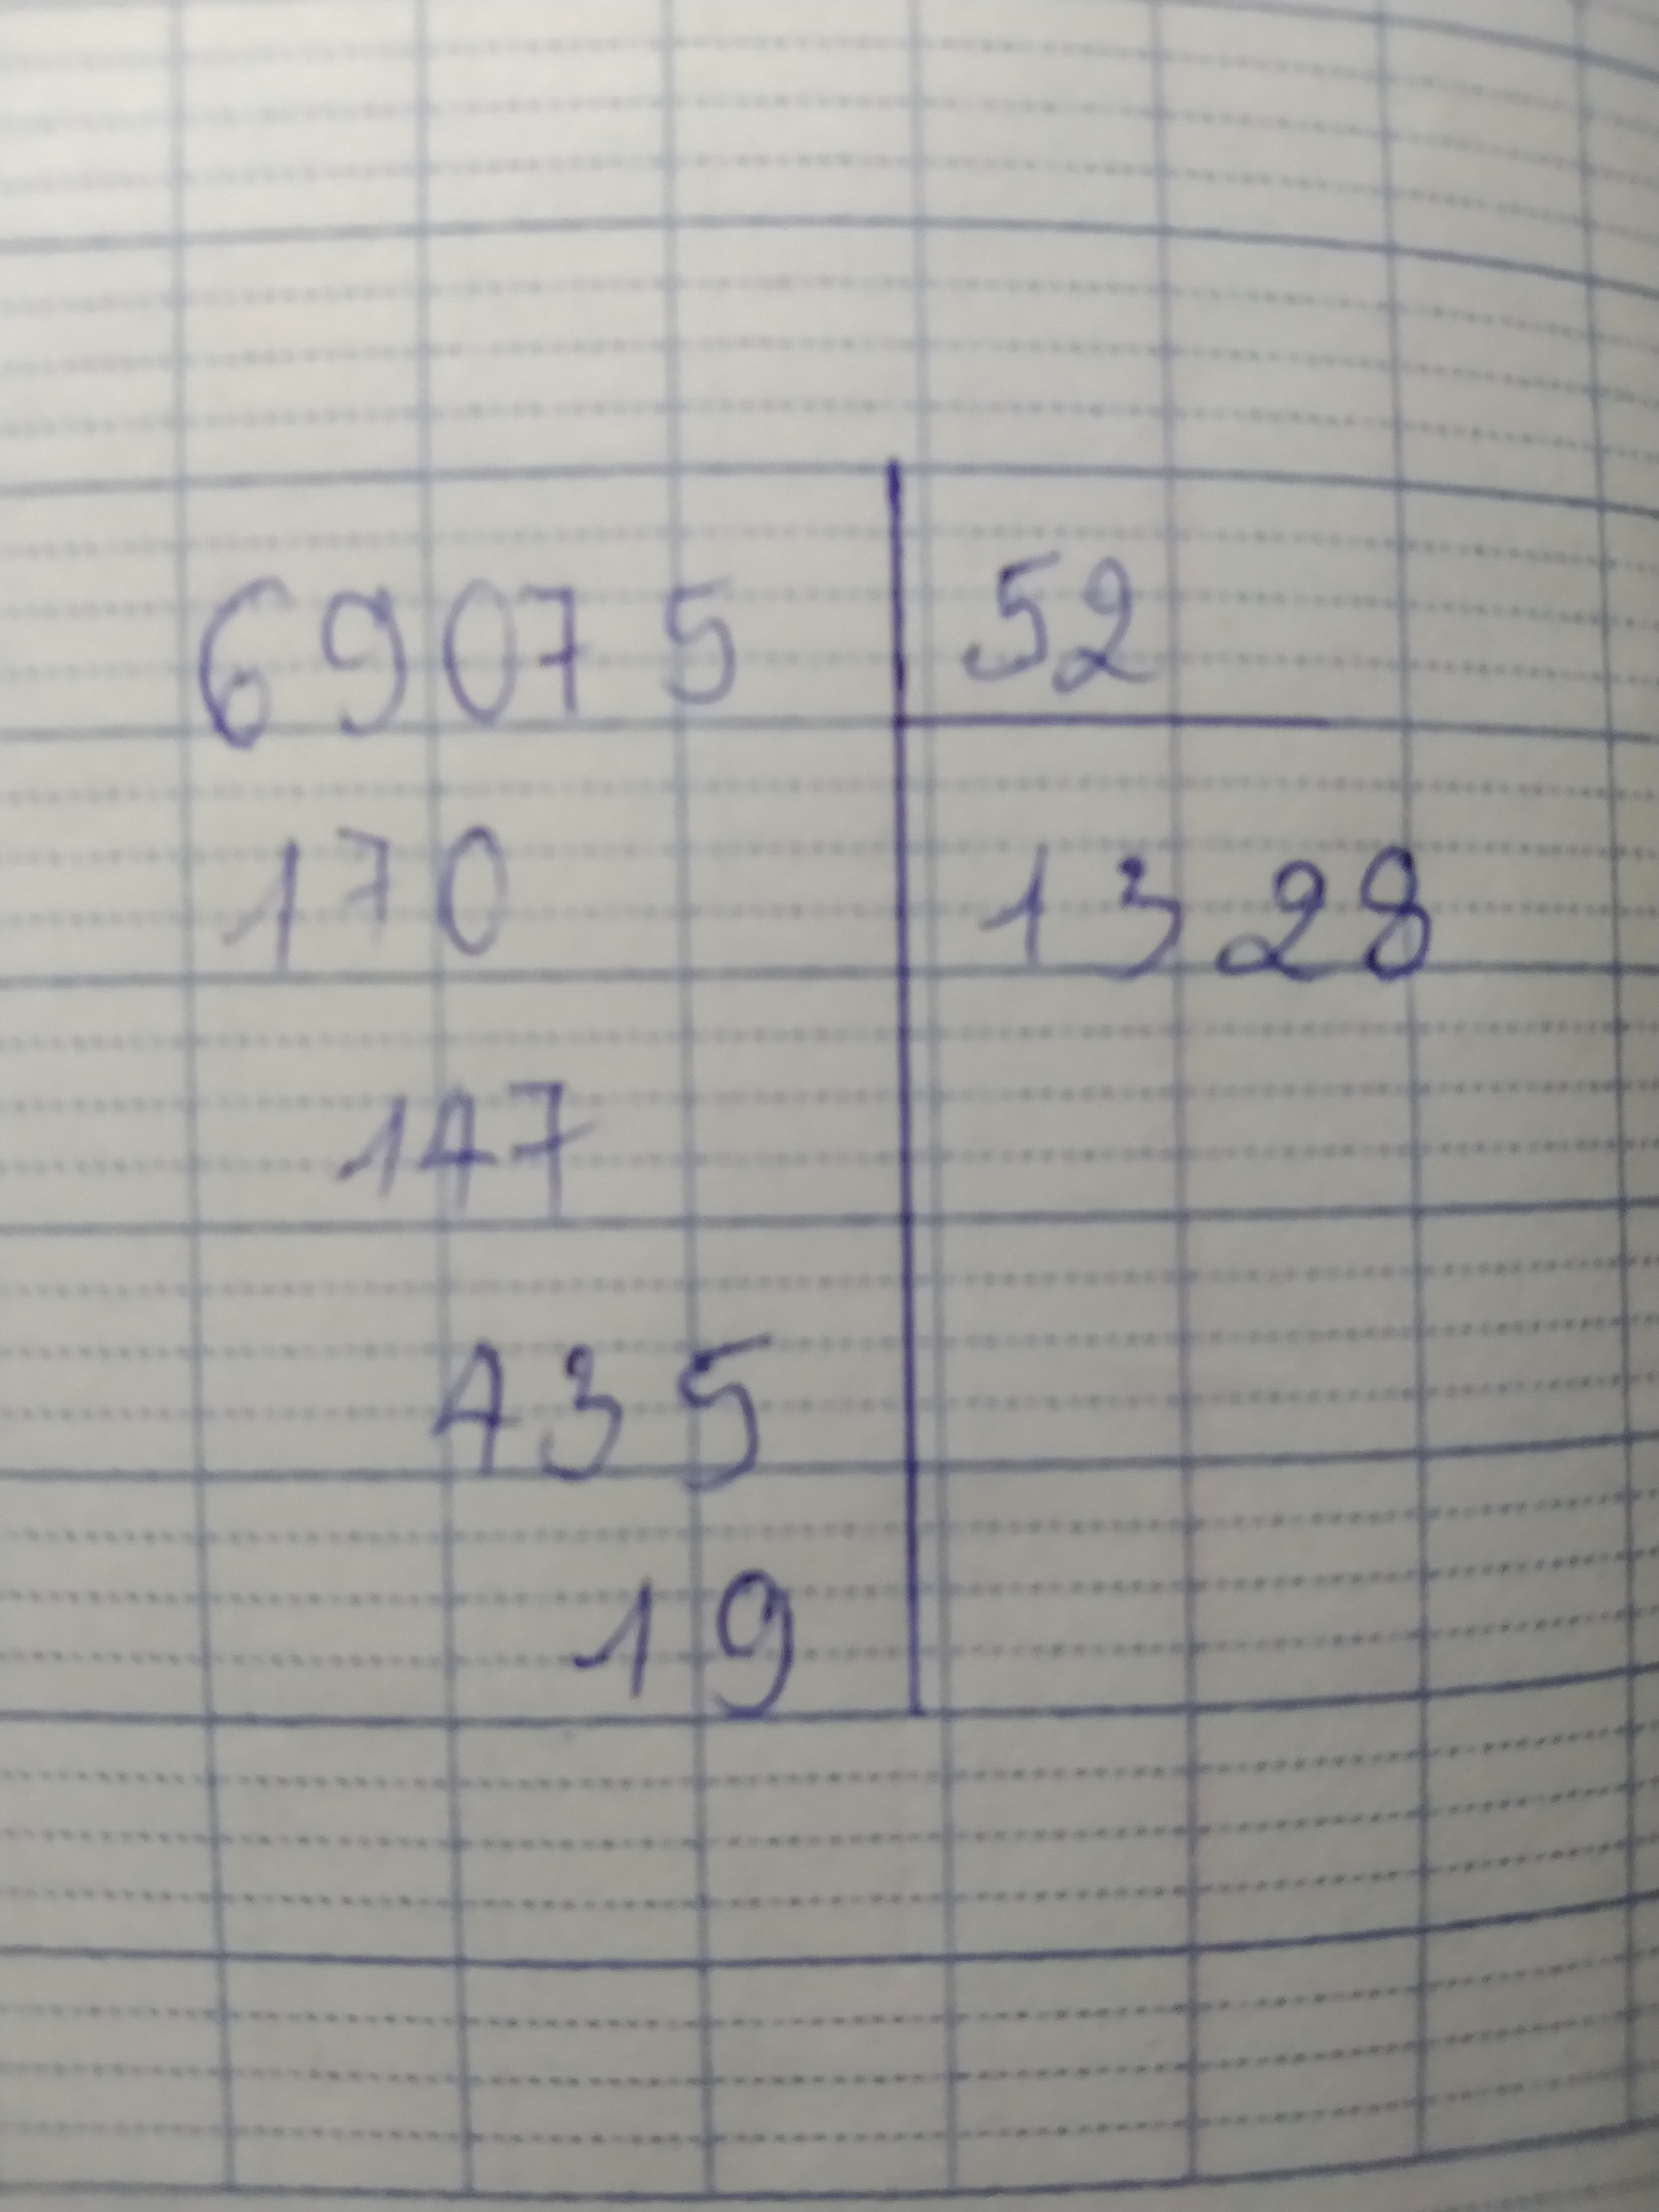 69075 52
170 1328
147
435
19